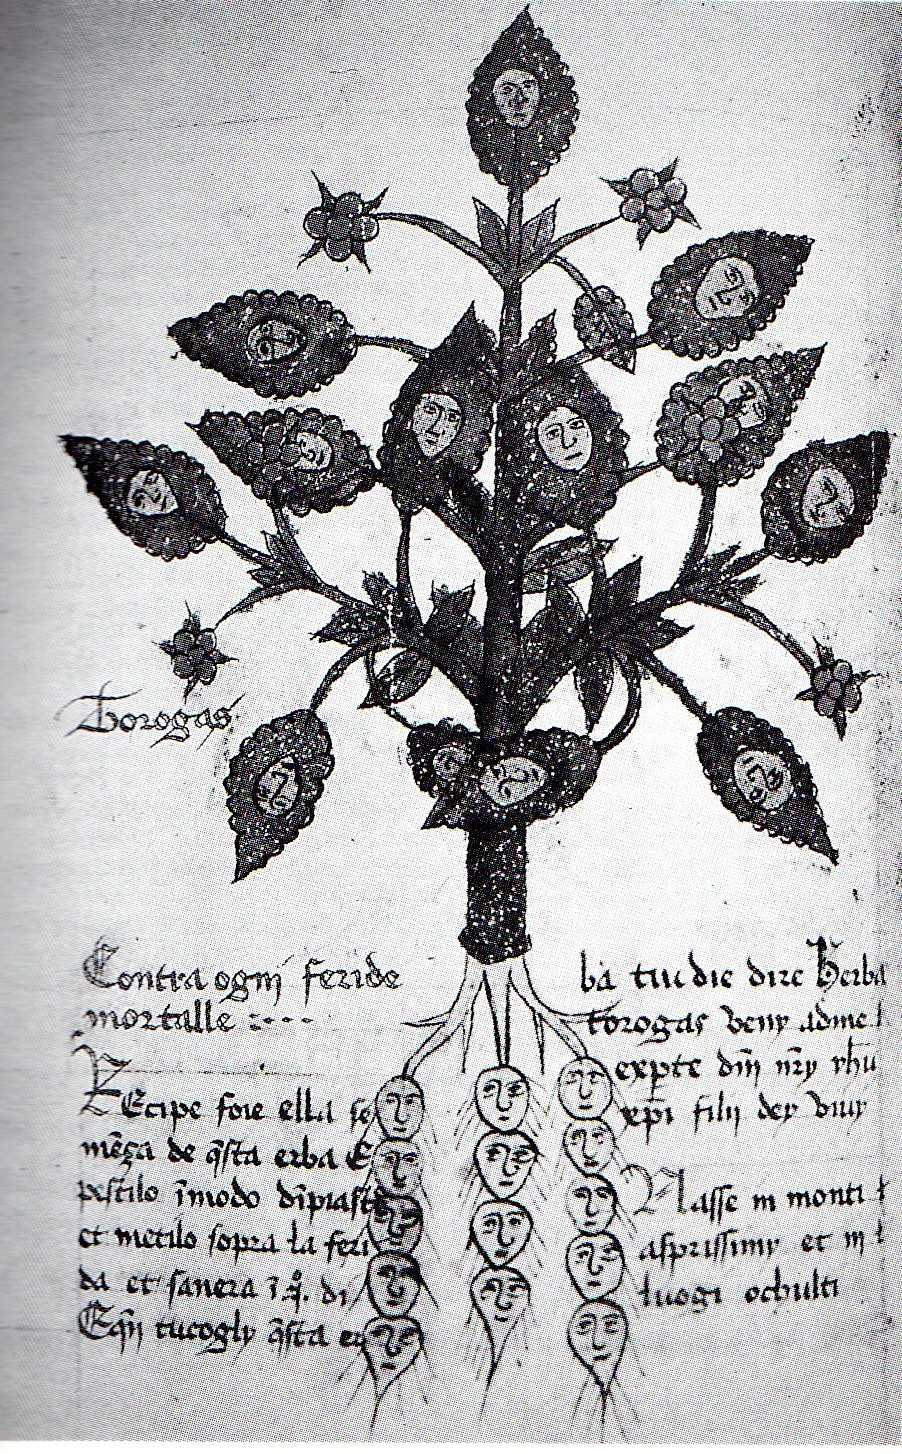 Torogas
Contra ogni feride
mortalle :---
Recipe foie ella se
mēza de q̄sta erba E
pestilo ī modo dīpiastr
et metilo sopra la feri
da et sanera ī 4. di
Eqn̄ tucogly q̄sta er
ba tiu die dire Herba
torogas veny adme
expte dn̄i nr̄y yhu
xp̄i filij dey viuy
Nasse in monti
asprissimy et in l
luogi ochulti